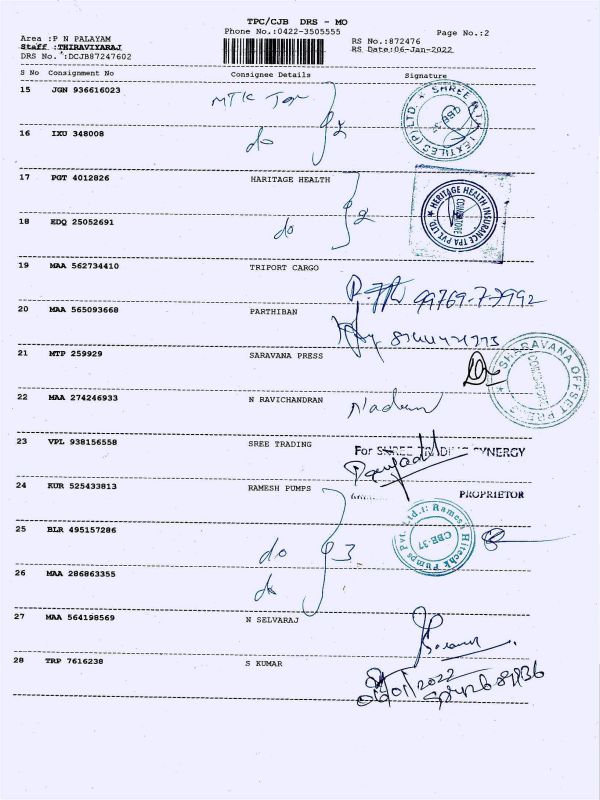 TPC/CJB DRS - MO
Phone No.:0422-3505555
Page No.:2
Area :P N PALAYAM
RS No.:872476
Staff :THIRAVIYARAJ
RS Date:06-Jan-2022
DRS No. :DCJB87247602
S No Consignment No Consignee Details Signature
15 JGN 936616023 MTK
16 IXU 348008 do 2
17 PGT 4012826 HARITAGE HEALTH
18 EDQ 25052691 do 2
HERITAGE HEALTH INSURANCE TPA PVT. LTD.
COIMBATORE
19 MAA 562734410 TRIPORT CARGO
20 MAA 565093668 PARTHIBAN
21 MTP 259929 SARAVANA PRESS
SHARAVANA OFFSET PRESS
22 MAA 274246933 N RAVICHANDRAN
23 VPL 938156558 SREE TRADING
For SHREE TRADING SYNERGY
24 KUR 525433813 RAMESH PUMPS
PROPRIETOR
25 BLR 495157286 do 3
Ramesh Hitech Pumps Pvt. Ltd.
CBE-37
26 MAA 286863355 do
27 MAA 564198569 N SELVARAJ
28 TRP 7616238 S KUMAR